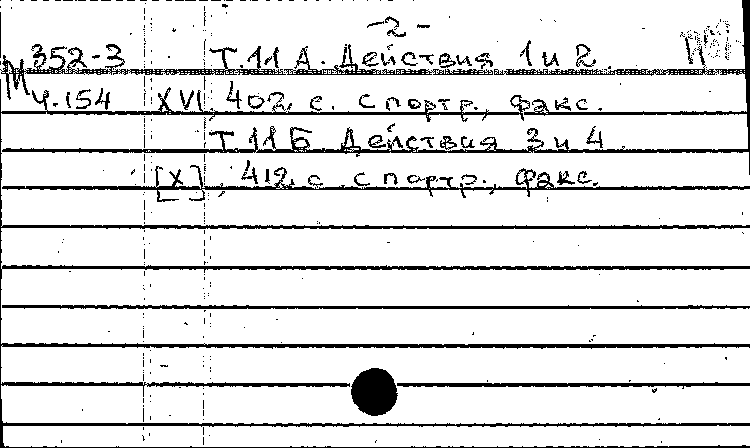 -2-
М 352-3 Т.11 А. Действия 1 и 2.
Ч-154 XVI, 402 с. с портр., факс.
Т. 11 Б Действия 3 и 4
[X], 412 с. с портр., факс.